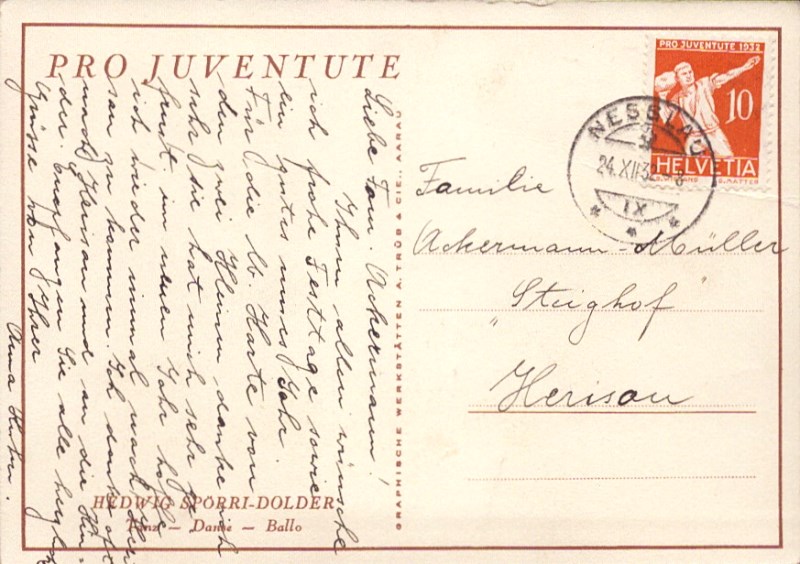 PRO JUVENTUTE
Liebe Fam. Ackermann!
Ihnen allen wünsche
ich frohe Festtage sowie
ein gutes neues Jahr.
Für die lb. Karte von
den zwei Kleinen danke ich
sehr, sie hat mich sehr ge-
freut. im neuen Jahr hoffe
ich wieder einmal nach Heri-
sau zu kommen. Ich danke oft
nach Herisau und an die Kin-
der. Empfangen Sie alle herzl.
Grüsse von Ihrer
Anna
HEDWIG SPÖRRI-DOLDER
Tanz — Danse — Ballo
GRAPHISCHE WERKSTÄTTEN A. TRÜB & CIE., AARAU
PRO JUVENTUTE 1932
10
HELVETIA
NESSLAU
24.XII.32
IX
Familie
Ackermann-Müller
"Steighof"
Herisau